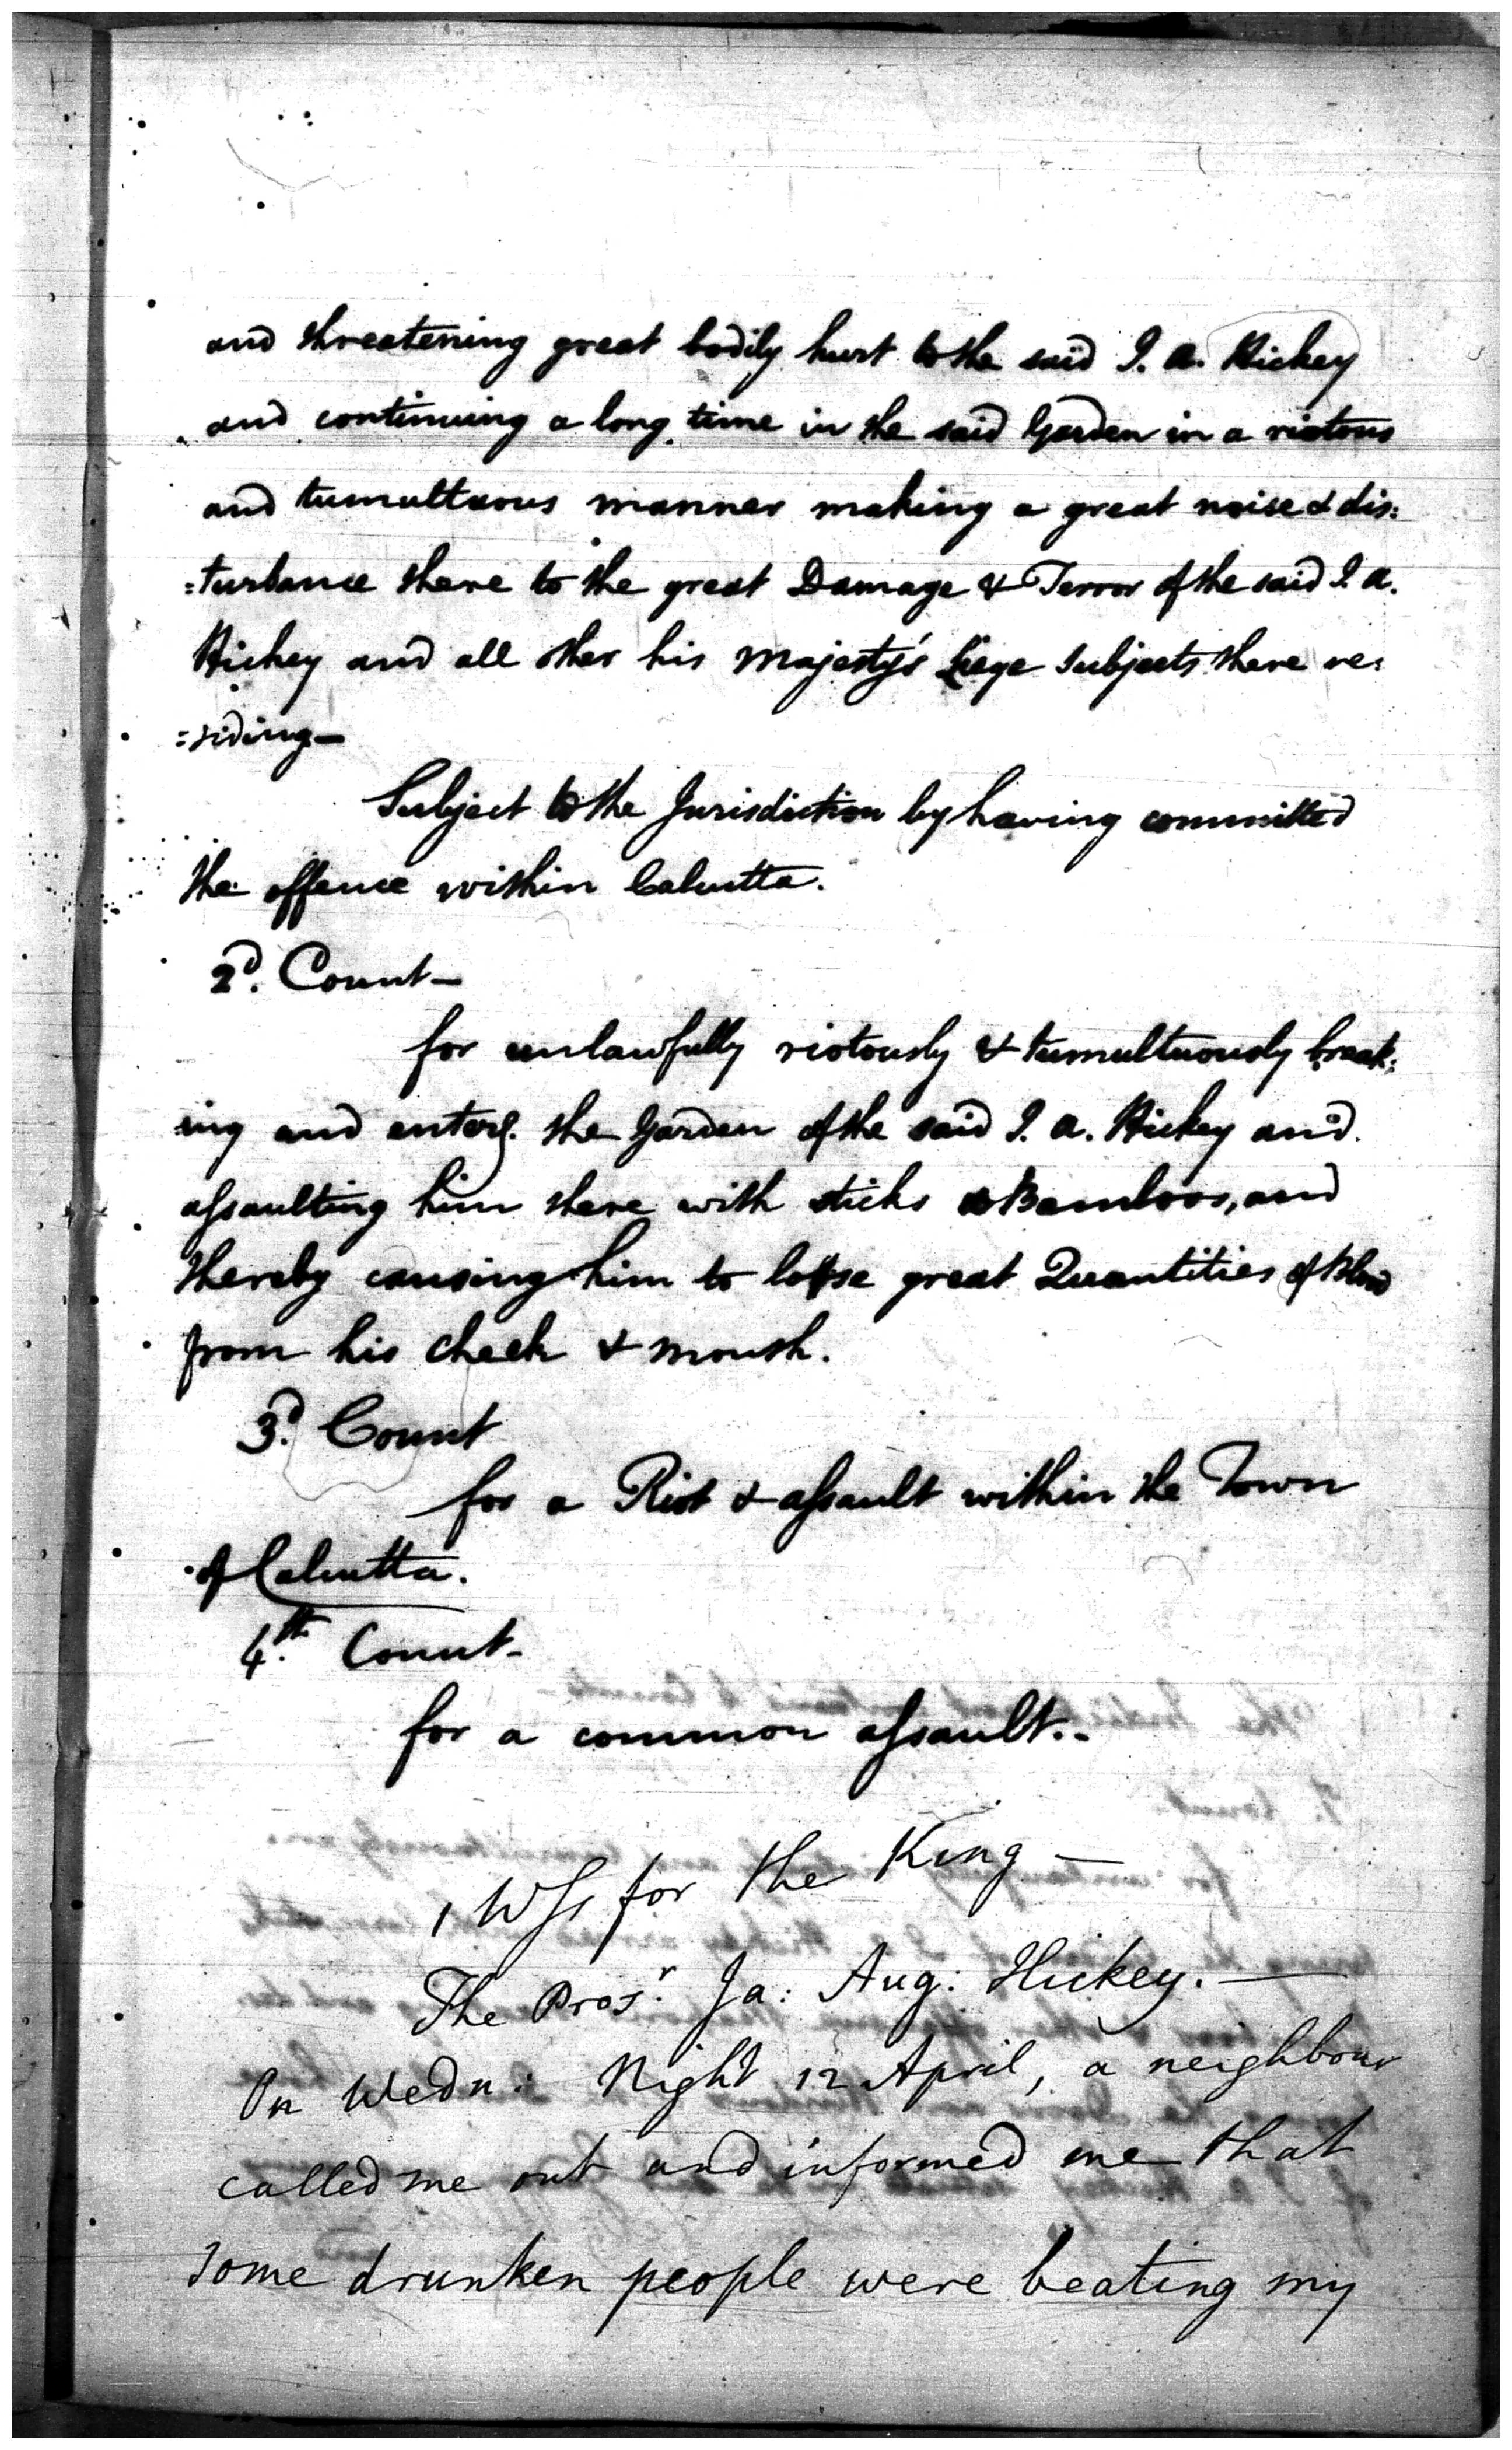 and threatening great bodily hurt to the said J. A. Hickey
and continuing a long time in the said Garden in a riotous
and tumultuous manner making a great noise & dis:
:turbance there to the great Damage & Terror of the said J. A.
Hickey and all other his Majesty's Liege Subjects there re:
:siding—
Subject to the Jurisdiction by having committed
the offence within Calcutta.
2d. Count—
for unlawfully riotously & tumultuously break:
ing and enterg. the Garden of the said J. A. Hickey and
assaulting him there with sticks & Bamboos, and
thereby causing him to loose great Quantities of Blood
from his cheek & mouth.
3d. Count
for a Riot & assault within the Town
of Calcutta.
4th. Count-
for a common assault.-
1 Wss for the King —
The Prosr. Ja: Aug: Hickey. —
On Wedn: Night 12 April, a neighbour
called me out and informed me that
some drunken people were beating my